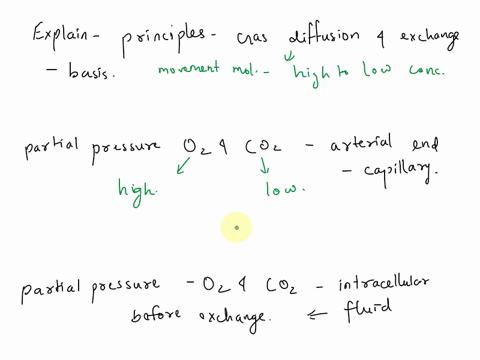 Explain - principles - gas diffusion & exchange
- basis. movement mol. - high to low conc.
partial pressure O2 & CO2 - arterial end
- capillary.
high. low.
partial pressure - O2 & CO2 - intracellular
before exchange. ← fluid